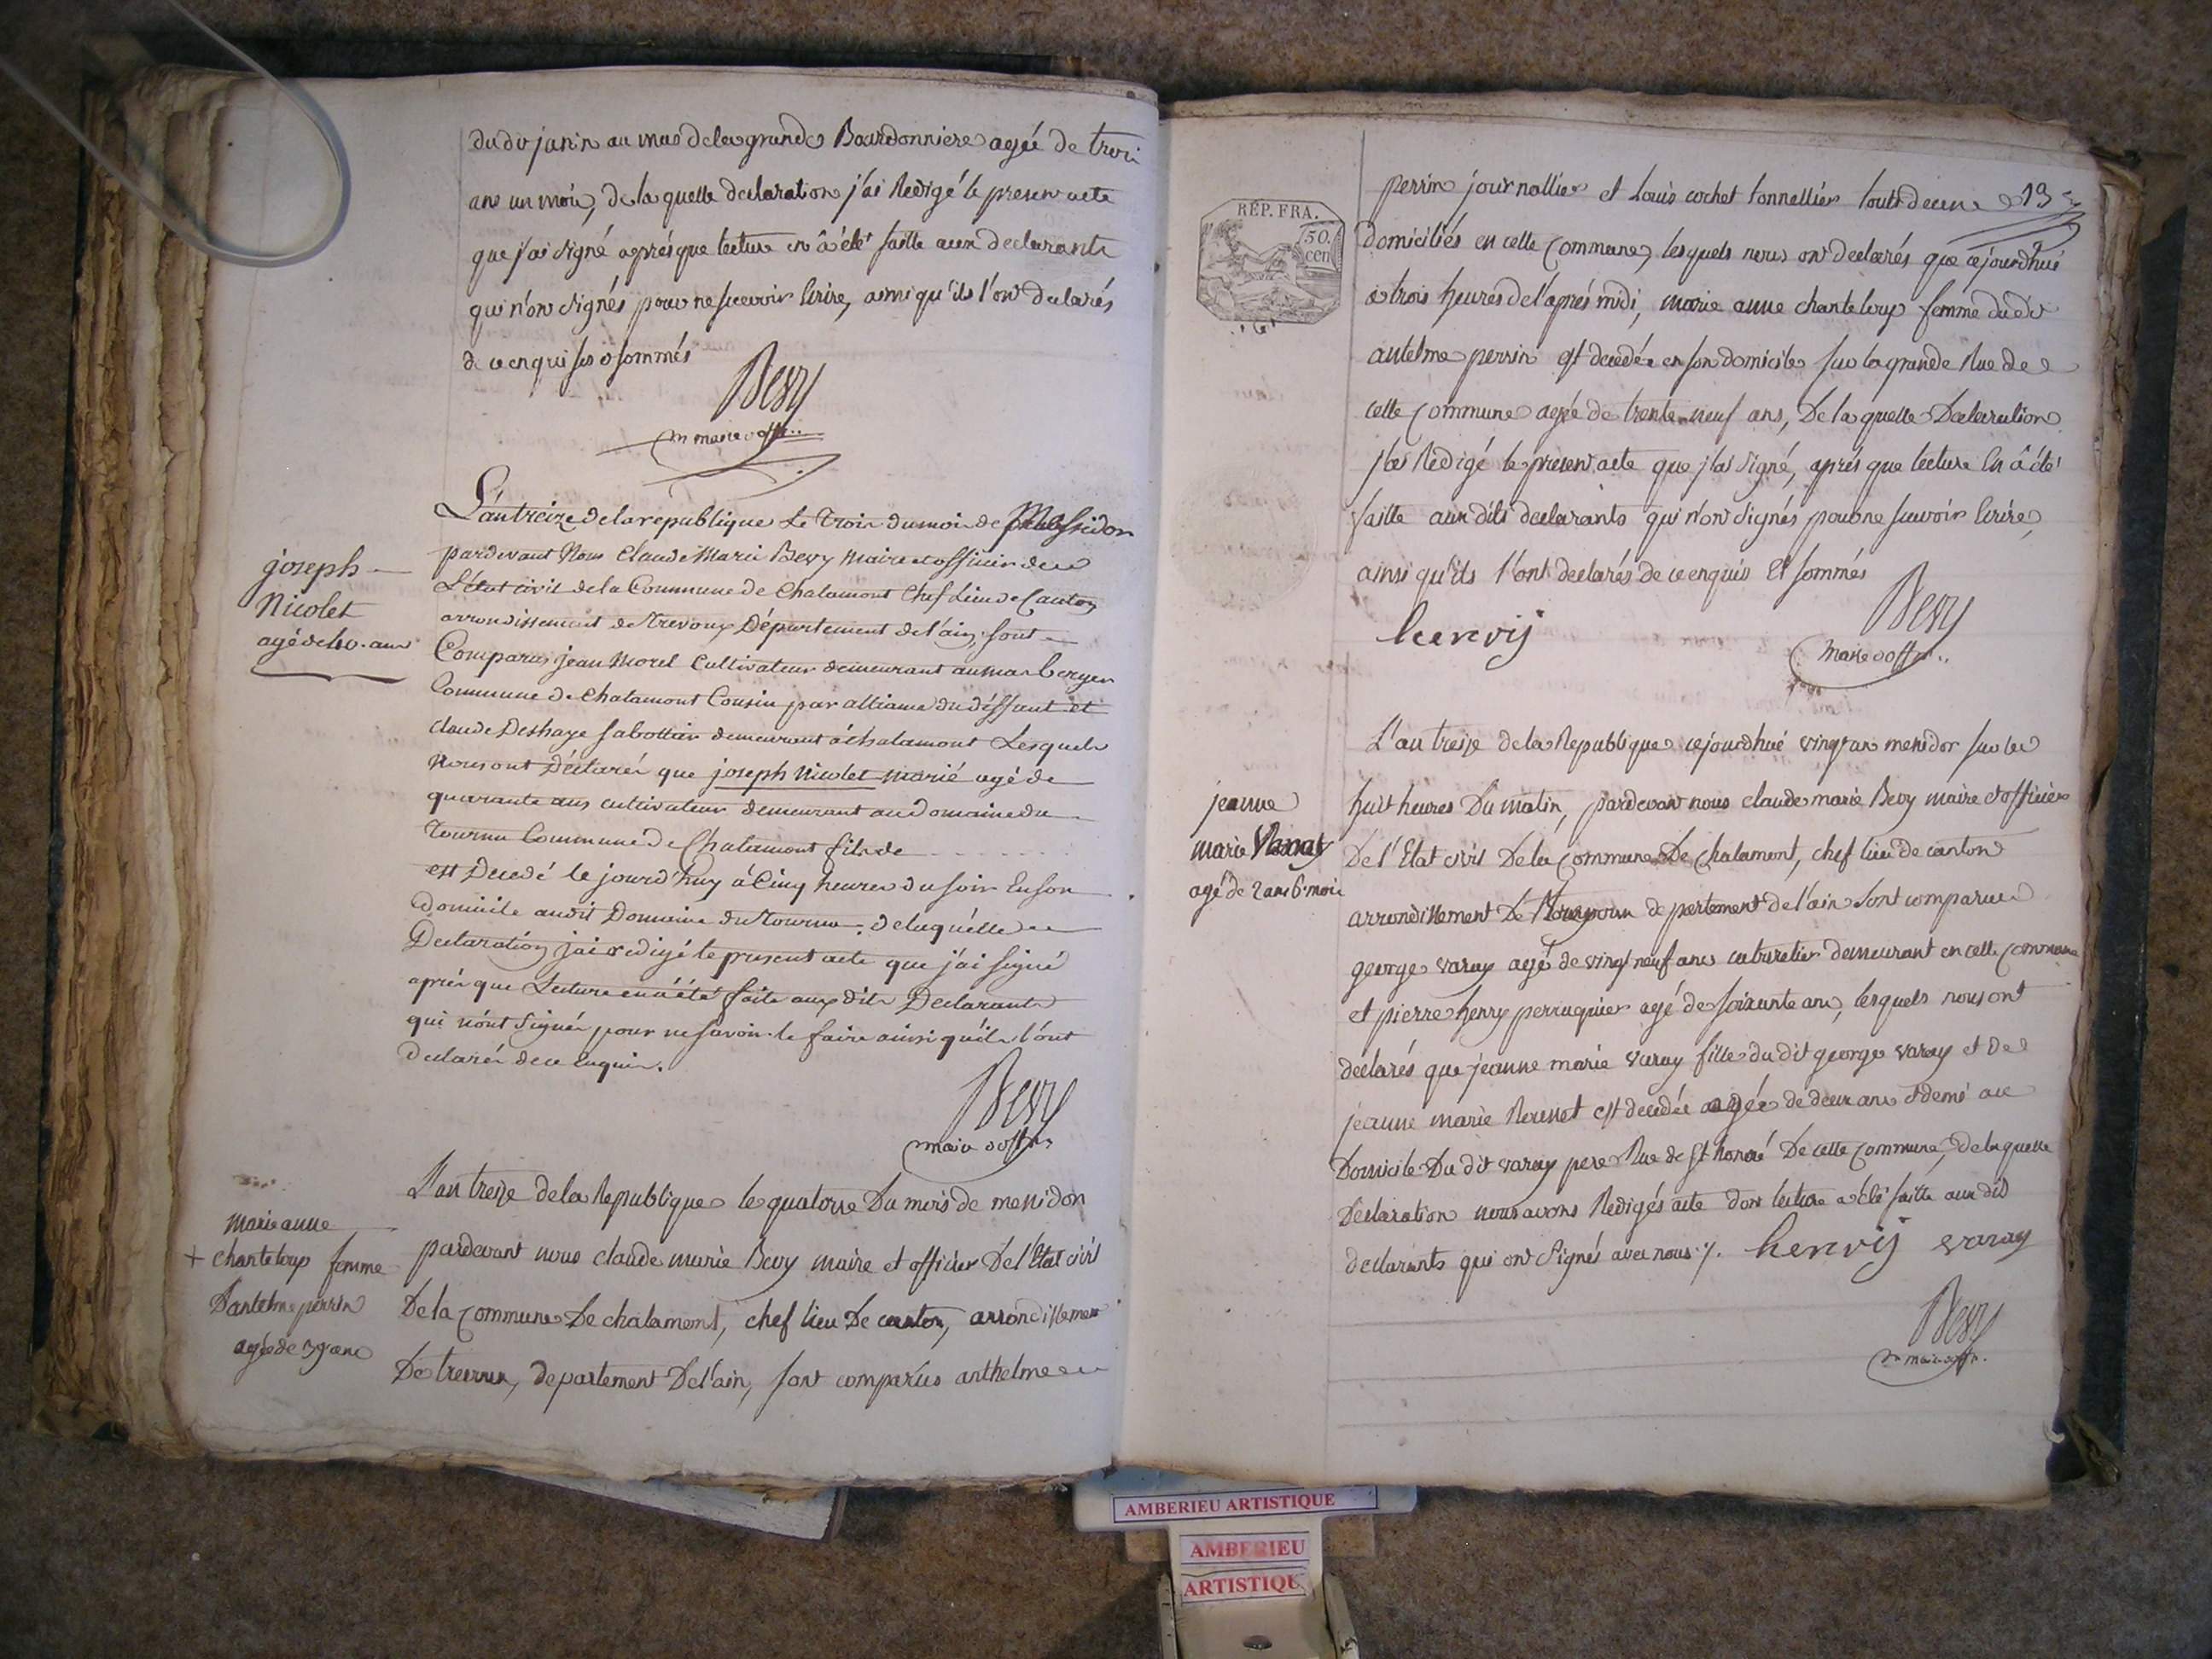 du dit janin au mas de la grande Bourdonniere agée de trois
ans un mois, de la quelle declaration j'ai Redigé le present acte
que j'ai signé aprésque lecture en â été faitte aux declarants
qui n'ont signés pour ne scavoir Ecrire, ainsi qu'ils l'ont declarés
de ce enquis et sommés
Bevy
maire
joseph
Nicolet
agé de 40. ans
L'an treize de la republique Le Trois du mois de Messidor
pardevant Nous Claude Marie Bevy Maire et officier de
L'état civil de la Commune de Chalamont Chef Lieu de Canton
arrondissement de Trevoux Département de l'ain, sont
Comparus jean Morel Cultivateur demeurant au mas berger
Commune de Chalamont Cousin par alliance du déffunt et
claude Deshaye sabottier demeurant à chalamont Lesquels
Nous ont Déclaré que joseph Nicolet marié agé de
quarante ans cultivateur demeurant au Domaine du
Tournu Commune de Chalamont fils de
est Decedé le jourd'huy à Cinq heures du soir En son
Domicile audit Domaine du Tournu. de laquélle
Declaration j'ai redigé le present acte que j'ai signé
aprés que Lecture en a été faite aux dits Declarants
qui n'ont signés pour ne savoir le faire ainsi qu'ils l'ont
declaré de ce Enquis.
Bevy
maire
marie anne
+ chanteloup femme
D'antelme perrin
agée de 39 ans
L'an treize de la Republique le quatorze Du mois de messidor
pardevant nous claude marie Bevy maire et officier De l'Etat civil
De la Commune De chalamont, chef lieu De canton, arrondissement
De trevoux, departement De l'ain, sont comparus anthelme
REP. FRA.
50.
cen
perrin journallier et Louis cochet tonnellier touts deux 13
domiciliés en cette Commune, lesquels nous ont declarés que cejourdhui
à trois heures de l'aprés midi, marie anne chanteloup femme du dit
antelme perrin est decedée en son domicile sur la grande Rue de
cette Commune agée de trente neuf ans, De la quelle Declaration
j'ai Redigé le present acte que j'ai signé, aprés que lecture En â été
faitte aux dits declarants qui n'ont signés pour ne scavoir Ecrire,
ainsi qu'ils l'ont declarés de ce enquis Et sommés
henrij
Bevy
Maire
jeanne
marie Varay
agé de 2 ans 6 mois
L'an treize de la Republique cejourdhui vingt un messidor sur les
huit heures Du matin, pardevant nous claude marie Bevy maire et officier
De l'Etat civil De la Commune De Chalamont, chef lieu de canton
arrondissement De Trevoux departement de l'ain sont comparus
george varay agé de vingt neuf ans cabaretier demeurant en cette Commune
et pierre henry perruquier agé de soixante ans, lesquels nous ont
declarés que jeanne marie varay fille du dit george varay et de
jeanne marie est decedée agée de deux ans et demi au
Domicile Du dit varay pere Rue de St honoré De cette Commune, de laquelle
Declaration nous avons Redigés acte dont lecture a été faitte aux dits
declarants qui ont signés avec nous ./. henrij varay
Bevy
maire
AMBERIEU ARTISTIQUE
AMBERIEU
ARTISTIQUE